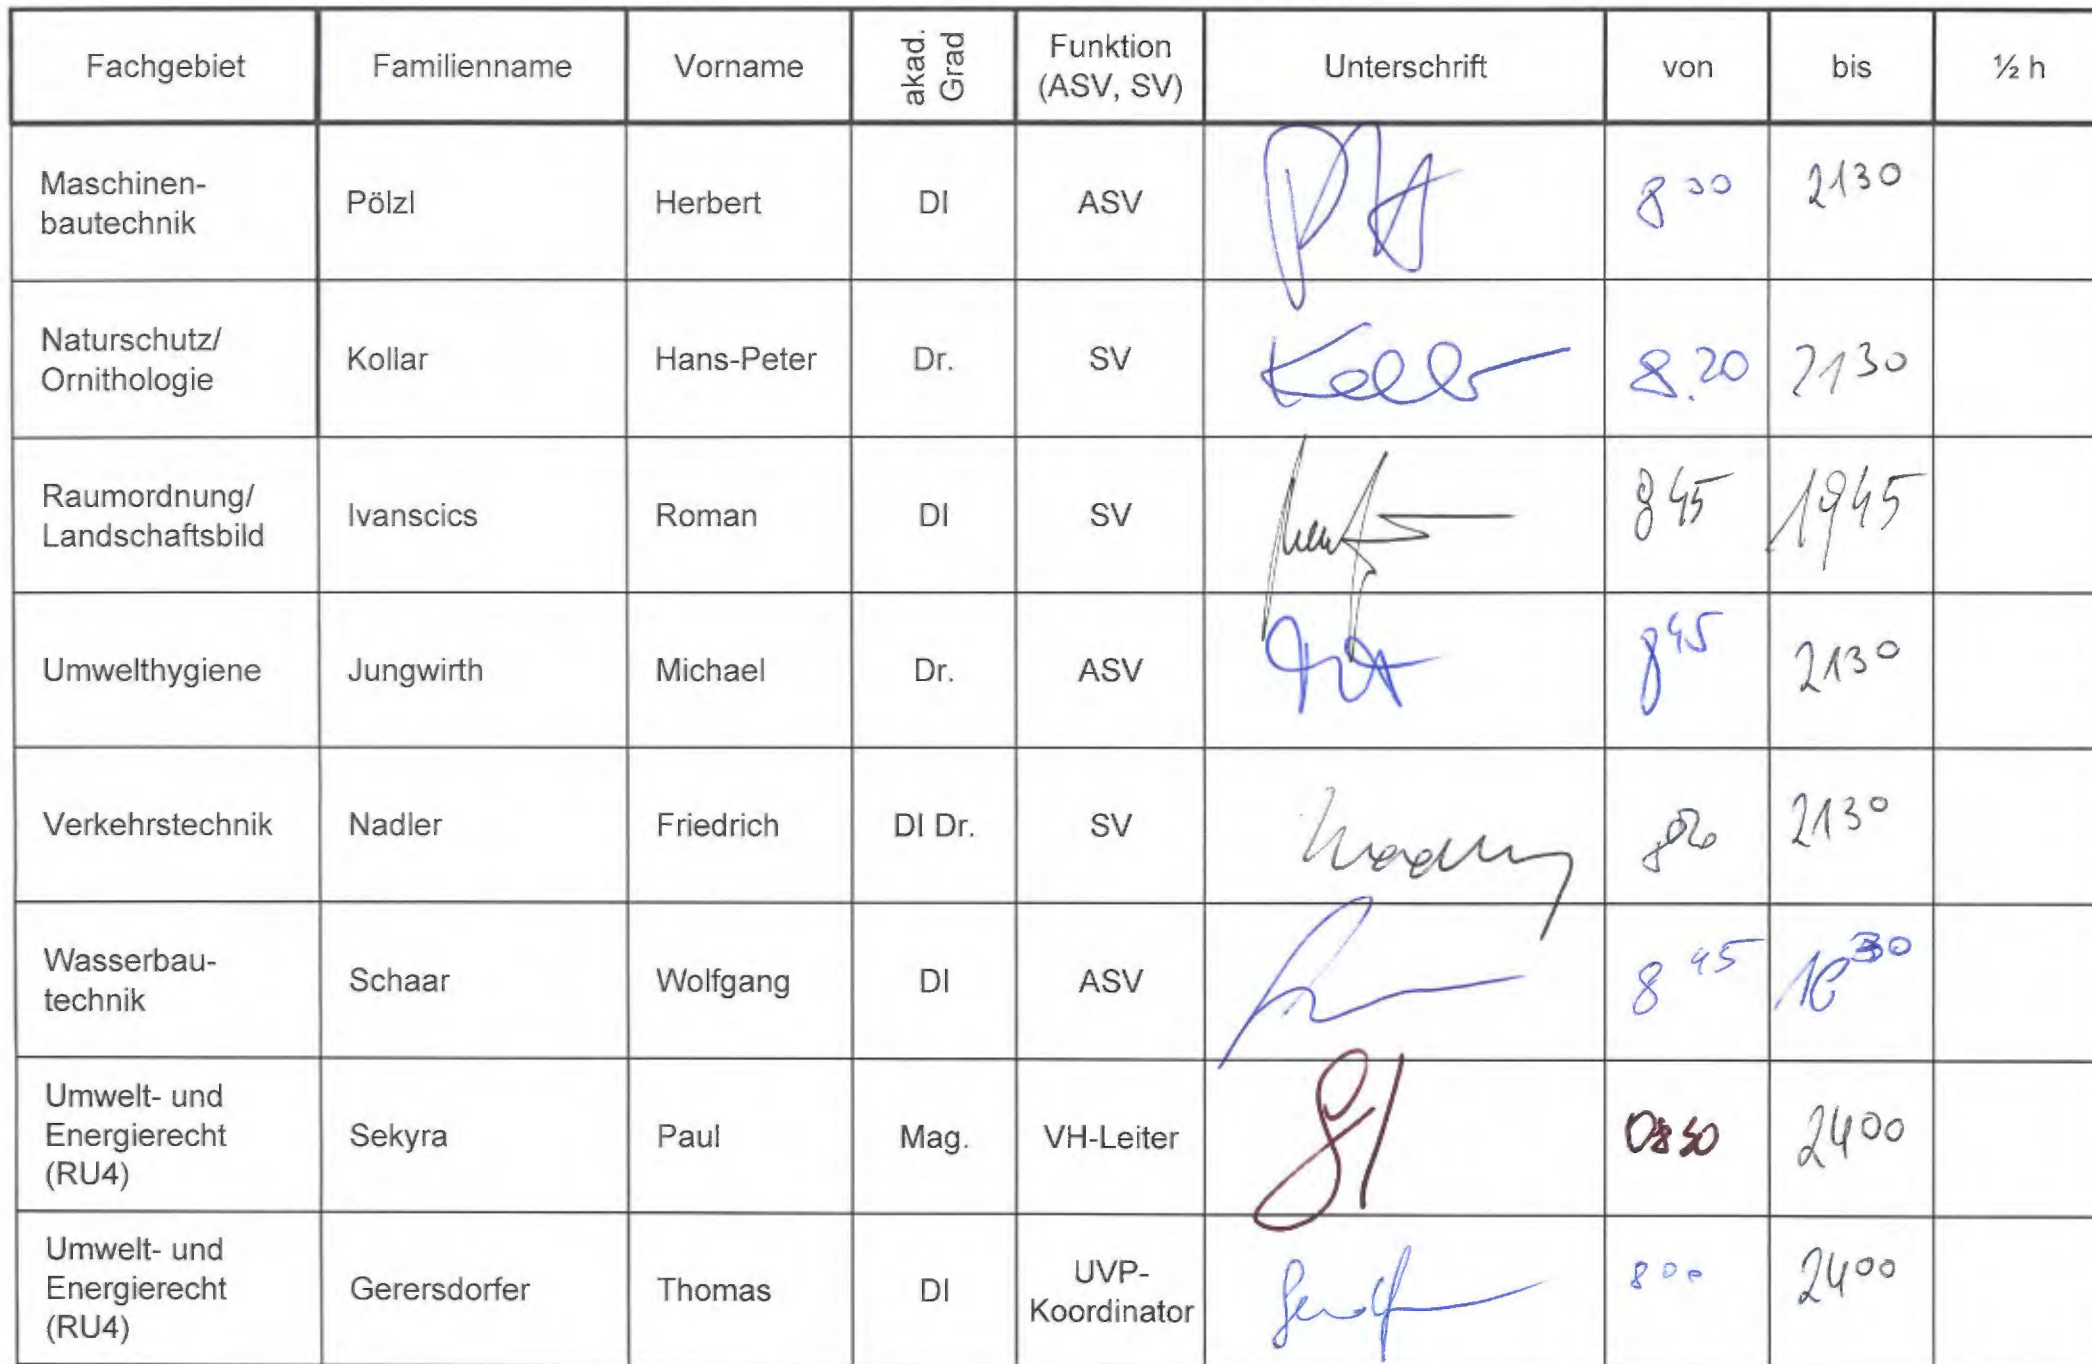 Fachgebiet Familienname Vorname akad. Grad Funktion (ASV, SV) Unterschrift von bis ½ h
Maschinen-
bautechnik Pölzl Herbert DI ASV 8 30 2130
Naturschutz/
Ornithologie Kollar Hans-Peter Dr. SV 8.20 2130
Raumordnung/
Landschaftsbild Ivanscics Roman DI SV 845 1945
Umwelthygiene Jungwirth Michael Dr. ASV 845 2130
Verkehrstechnik Nadler Friedrich DI Dr. SV 2130
Wasserbau-
technik Schaar Wolfgang DI ASV 8 45
Umwelt- und
Energierecht
(RU4) Sekyra Paul Mag. VH-Leiter 2400
Umwelt- und
Energierecht
(RU4) Gerersdorfer Thomas DI UVP-
Koordinator 800 2400